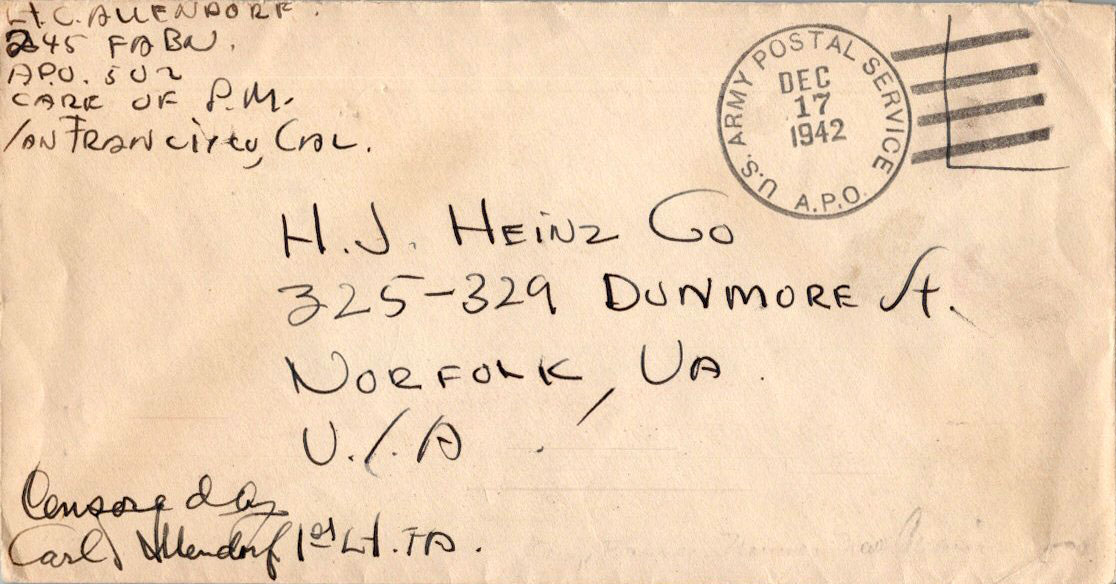 Lt. C. ALLENDORF.
245 FA BN.
APO. 502
CARE OF P.M.
SAN FRANCISCO, CAL.
U.S. ARMY POSTAL SERVICE
DEC
17
1942
A.P.O.
H.J. HEINZ CO
325-329 DUNMORE St.
NORFOLK, VA.
U.S.A.
Censored by
Carl Allendorf 1st Lt. FA.